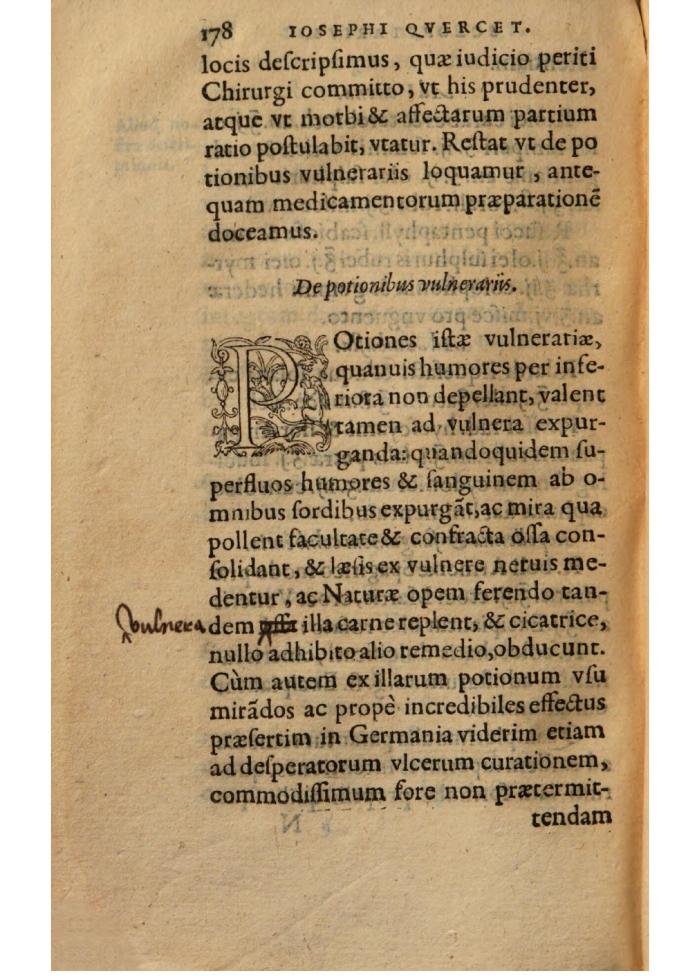 178 IOSEPHI QVERCET.
locis deſcripſimus, quæ iudicio periti
Chirurgi committo, vt his prudenter,
atque vt morbi & affectarum partium
ratio poſtulabit, vtatur. Reſtat vt de po
tionibus vulnerariis loquamur, ante-
quam medicamentorum præparationē
doceamus.
De potionibus vulnerariis.
POtiones iſtæ vulnerariæ,
quanuis humores per infe-
riora non depellant, valent
tamen ad vulnera expur-
ganda: quandoquidem ſu-
perfluos humores & ſanguinem ab o-
mnibus ſordibus expurgāt, ac mira qua
pollent facultate & confracta oſſa con-
ſolidant, & læſis ex vulnere neruis me-
dentur, ac Naturæ opem ferendo tan-
vulnera dem illa carne replent, & cicatrice,
nullo adhibito alio remedio, obducunt.
Cùm autem ex illarum potionum vſu
mirādos ac propè incredibiles effectus
præſertim in Germania viderim etiam
ad deſperatorum vlcerum curationem,
commodiſſimum fore non prætermit-
tendam